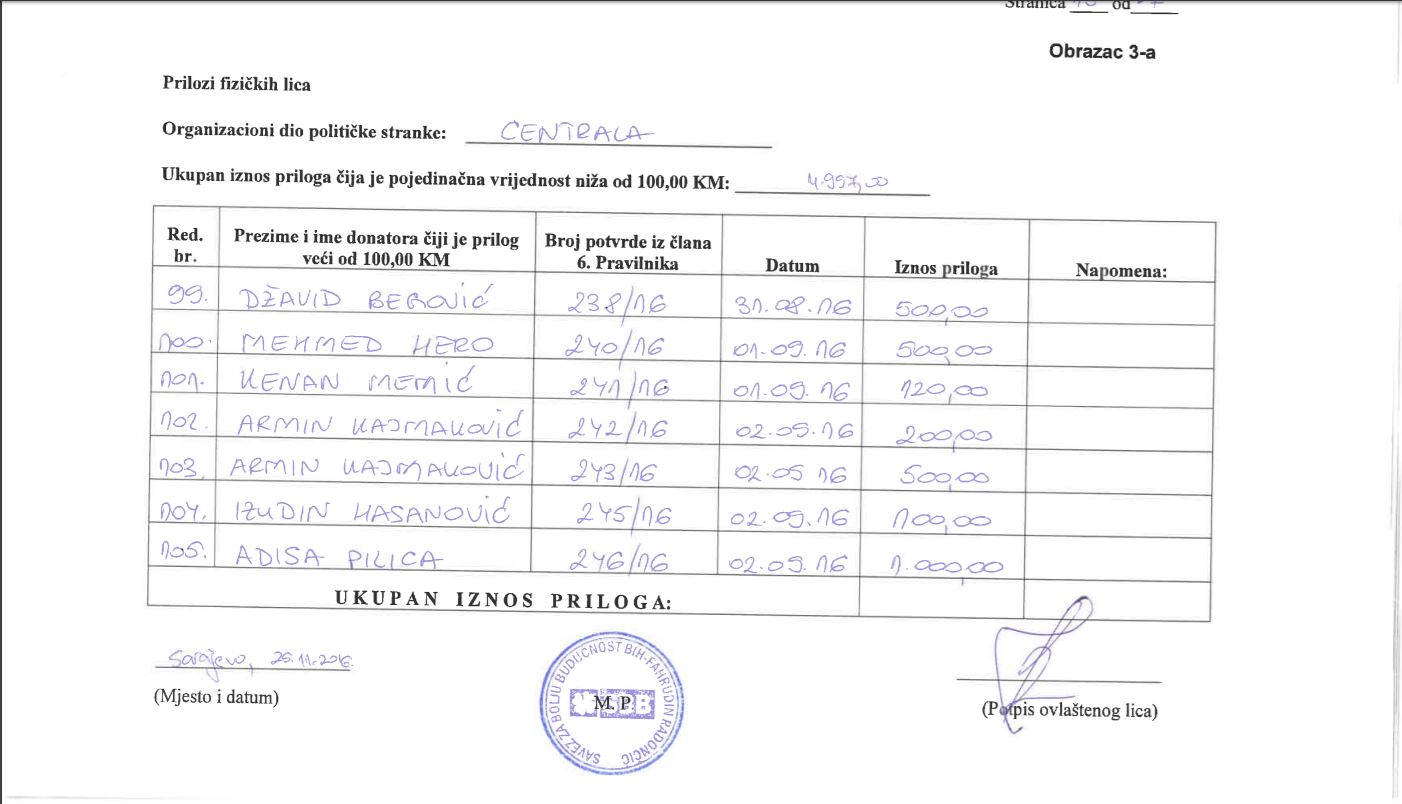 Stranica od
Obrazac 3-a
Prilozi fizičkih lica
Organizacioni dio političke stranke: CENTRALA
Ukupan iznos priloga čija je pojedinačna vrijednost niža od 100,00 KM: 4.997,00
Red. br. Prezime i ime donatora čiji je prilog veći od 100,00 KM Broj potvrde iz člana 6. Pravilnika Datum Iznos priloga Napomena:
99. DŽAVID BEROVIĆ 238/16 31.08.16 500,00
100. MEHMED HERO 240/16 01.09.16 500,00
101. KENAN MEMIĆ 241/16 01.09.16 120,00
102. ARMIN KAJMAKOVIĆ 242/16 02.09.16 200,00
103. ARMIN KAJMAKOVIĆ 243/16 02.09 16 500,00
104. IZUDIN HASANOVIĆ 245/16 02.09.16 100,00
105. ADISA PILICA 246/16 02.09.16 1.000,00
UKUPAN IZNOS PRILOGA:
Sarajevo, 25.11.2016.
(Mjesto i datum)
SAVEZ ZA BOLJU BUDUĆNOST BIH-FAHRUDIN RADONČIĆ
M. P.
SBB
(Potpis ovlaštenog lica)